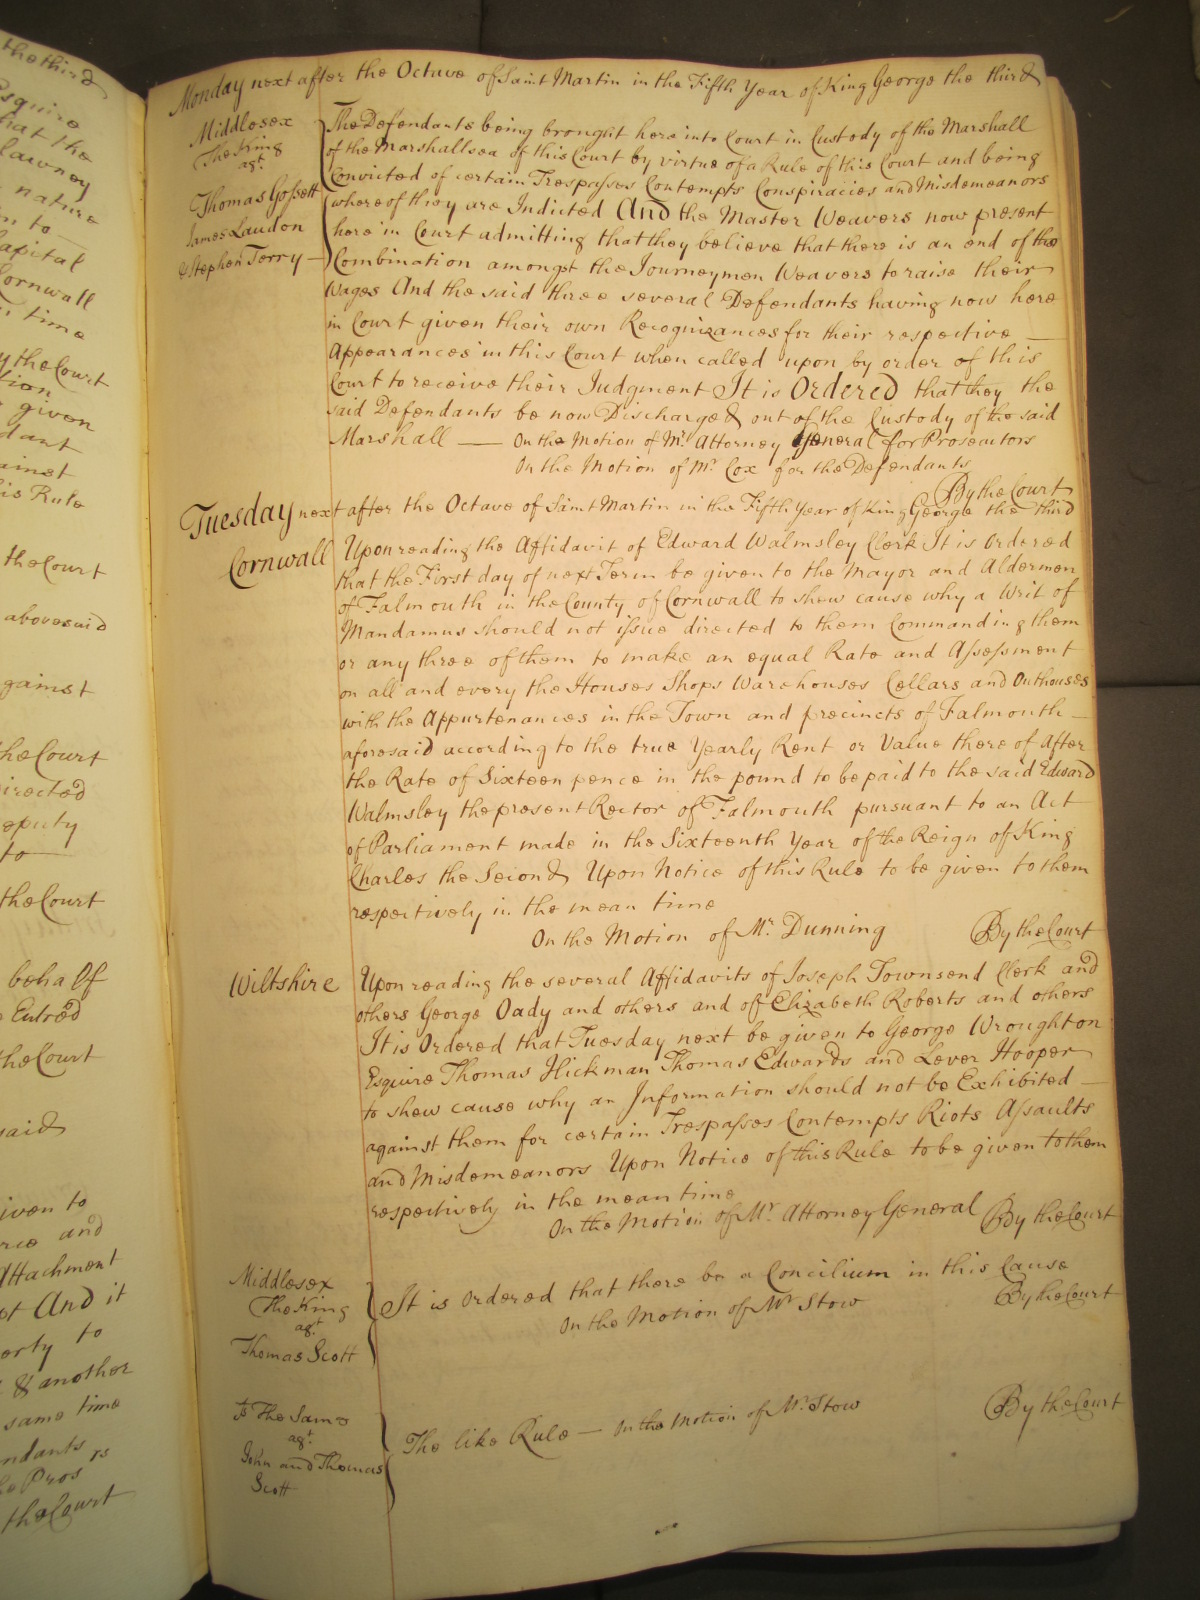 the third
Esquire
that the
lawney
nature
to
Capital
Cornwall
time
by the Court
given
dant
against
is Rule
the Court
abovesaid
against
the Court
directed
eputy
to
the Court
behalf
Entred
the Court
said
given to
and
Attachment
And it
to
& another
same time
the Court
Monday next after the Octave of Saint Martin in the Fifth Year of King George the third
Middlesex
The King
agt
Thomas Gossett
James Laudon
& Stephen Terry
The Defendants being brought here into Court in Custody of the Marshall
of the Marshallsea of this Court by virtue of a Rule of this Court and being
Convicted of certain Trespasses Contempts Conspiracies and Misdemeanors
whereof they are Indicted And the Master Weavers now present
here in Court admitting that they believe that there is an end of the
Combination amongst the Journeymen Weavers to raise their
Wages And the said three several Defendants having now here
in Court given their own Recognizances for their respective
Appearances in this Court when called upon by order of this
Court to receive their Judgment It is Ordered that they the
said Defendants be now Discharged out of the Custody of the said
Marshall — On the Motion of Mr. Attorney General for Prosecutors
On the Motion of Mr. Cox for the Defendants
By the Court
Tuesday next after the Octave of Saint Martin in the Fifth Year of King George the third
Cornwall
Upon reading the Affidavit of Edward Walmsley Clerk It is Ordered
that the First day of next Term be given to the Mayor and Aldermen
of Falmouth in the County of Cornwall to shew cause why a Writ of
Mandamus should not issue directed to them Commanding them
or any three of them to make an equal Rate and Assessment
on all and every the Houses Shops Warehouses Cellars and Outhouses
with the Appurtenances in the Town and precincts of Falmouth
aforesaid according to the true Yearly Rent or Value there of After
the Rate of Sixteen pence in the pound to be paid to the said Edward
Walmsley the present Rector of Falmouth pursuant to an Act
of Parliament made in the Sixteenth Year of the Reign of King
Charles the Second Upon Notice of this Rule to be given to them
respectively in the mean time
On the Motion of Mr. Dunning By the Court
Wiltshire
Upon reading the several Affidavits of Joseph Townsend Clerk and
others George Oady and others and of Elizabeth Roberts and others
It is Ordered that Tuesday next be given to George Wroughton
Esquire Thomas Hickman Thomas Edwards and Lever Hooper
to shew cause why an Information should not be Exhibited
against them for certain Trespasses Contempts Riots Assaults
and Misdemeanors Upon Notice of this Rule to be given to them
respectively in the mean time
On the Motion of Mr. Attorney General By the Court
Middlesex
The King
agt.
Thomas Scott
It is Ordered that there be a Concilium in this Cause
On the Motion of Mr. Stow By the Court
The Same
agt.
John and Thomas
Scott
The like Rule — On the Motion of Mr. Stow By the Court